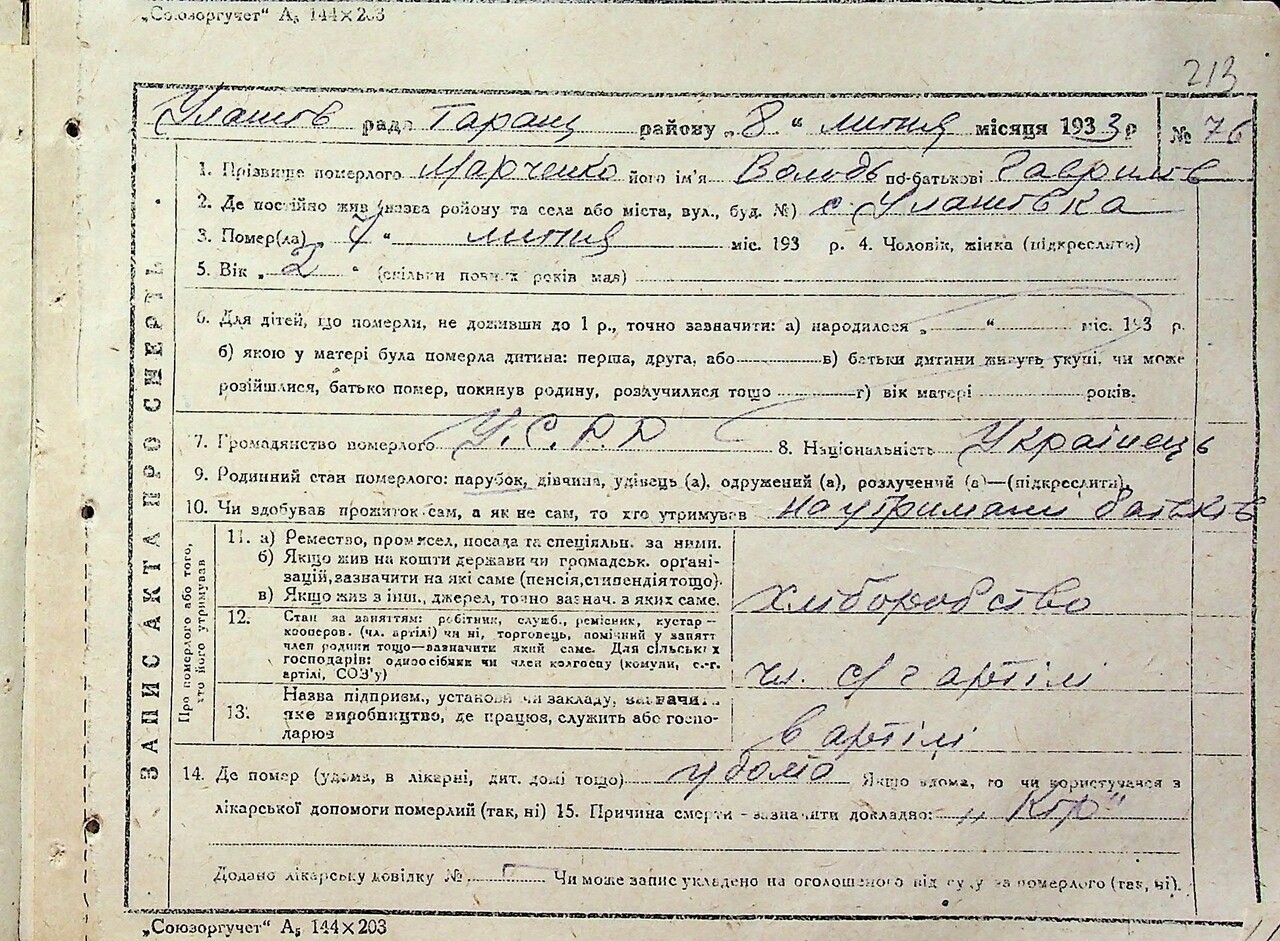 „Союзоргучет" А₅ 144×203
213
Улашів рада Таращ району „ 8 " липня місяця 1933 р № 76
ЗАПИС АКТА ПРО СМЕРТЬ.
1. Прізвище померлого Марченко його ім'я Володь по-батькові Гаврилов
2. Де постійно жив (назва району та села або міста, вул., буд. №) с. Улашівка
3. Помер(ла) „ 7 " липня міс. 193 р. 4. Чоловік, жінка (підкреслити)
5. Вік „ 2 " (скільки повних років мав)
6. Для дітей, що померли, не доживши до 1 р., точно зазначити: а) народилося „ " міс. 193 р.
б) якою у матері була померла дитина: перша, друга, або в) батьки дитини живуть укупі, чи може
розійшлися, батько помер, покинув родину, розлучилися тощо г) вік матері років.
7. Громадянство померлого У.С.Р.Р 8. Національність Українець
9. Родинний стан померлого: парубок, дівчина, удівець (а), одружений (а), розлучений (а)—(підкреслити).
10. Чи здобував прожиток сам, а як не сам, то хто утримував на утримані батьків
Про померлого або того,
хто його утримував
11. а) Ремество, промисел, посада та спеціяльн. за ними.
б) Якщо жив на кошти держави чи громадськ. орґані-
зацій, зазначити на які саме (пенсія, стипендія тощо).
в) Якщо жив з інш., джерел, точно зазнач. з яких саме. хліборобство
12. Стан за заняттям: робітник, служб., ремісник, кустар—
кооперов. (чл. артілі) чи ні, торговець, помічний у занятт
член родини тощо—зазначити який саме. Для сільських
господарів: одноосібник чи член колгоспу (комуни, с.-г.
артілі, СОЗ'у) чл. с/г артілі
13. Назва підприєм., установи чи закладу, зазначити
яке виробництво, де працює, служить або госпо-
дарює в артілі
14. Де помер (удома, в лікарні, дит. домі тощо) у дома Якщо вдома, то чи користувався з
лікарської допомоги померлий (так, ні) 15. Причина смерти - зазначити докладно: „ Кір"
Додано лікарську довідку № Чи може запис укладено на оголошеного від суду за померлого (так, ні).
„Союзоргучет" А₅ 144×203